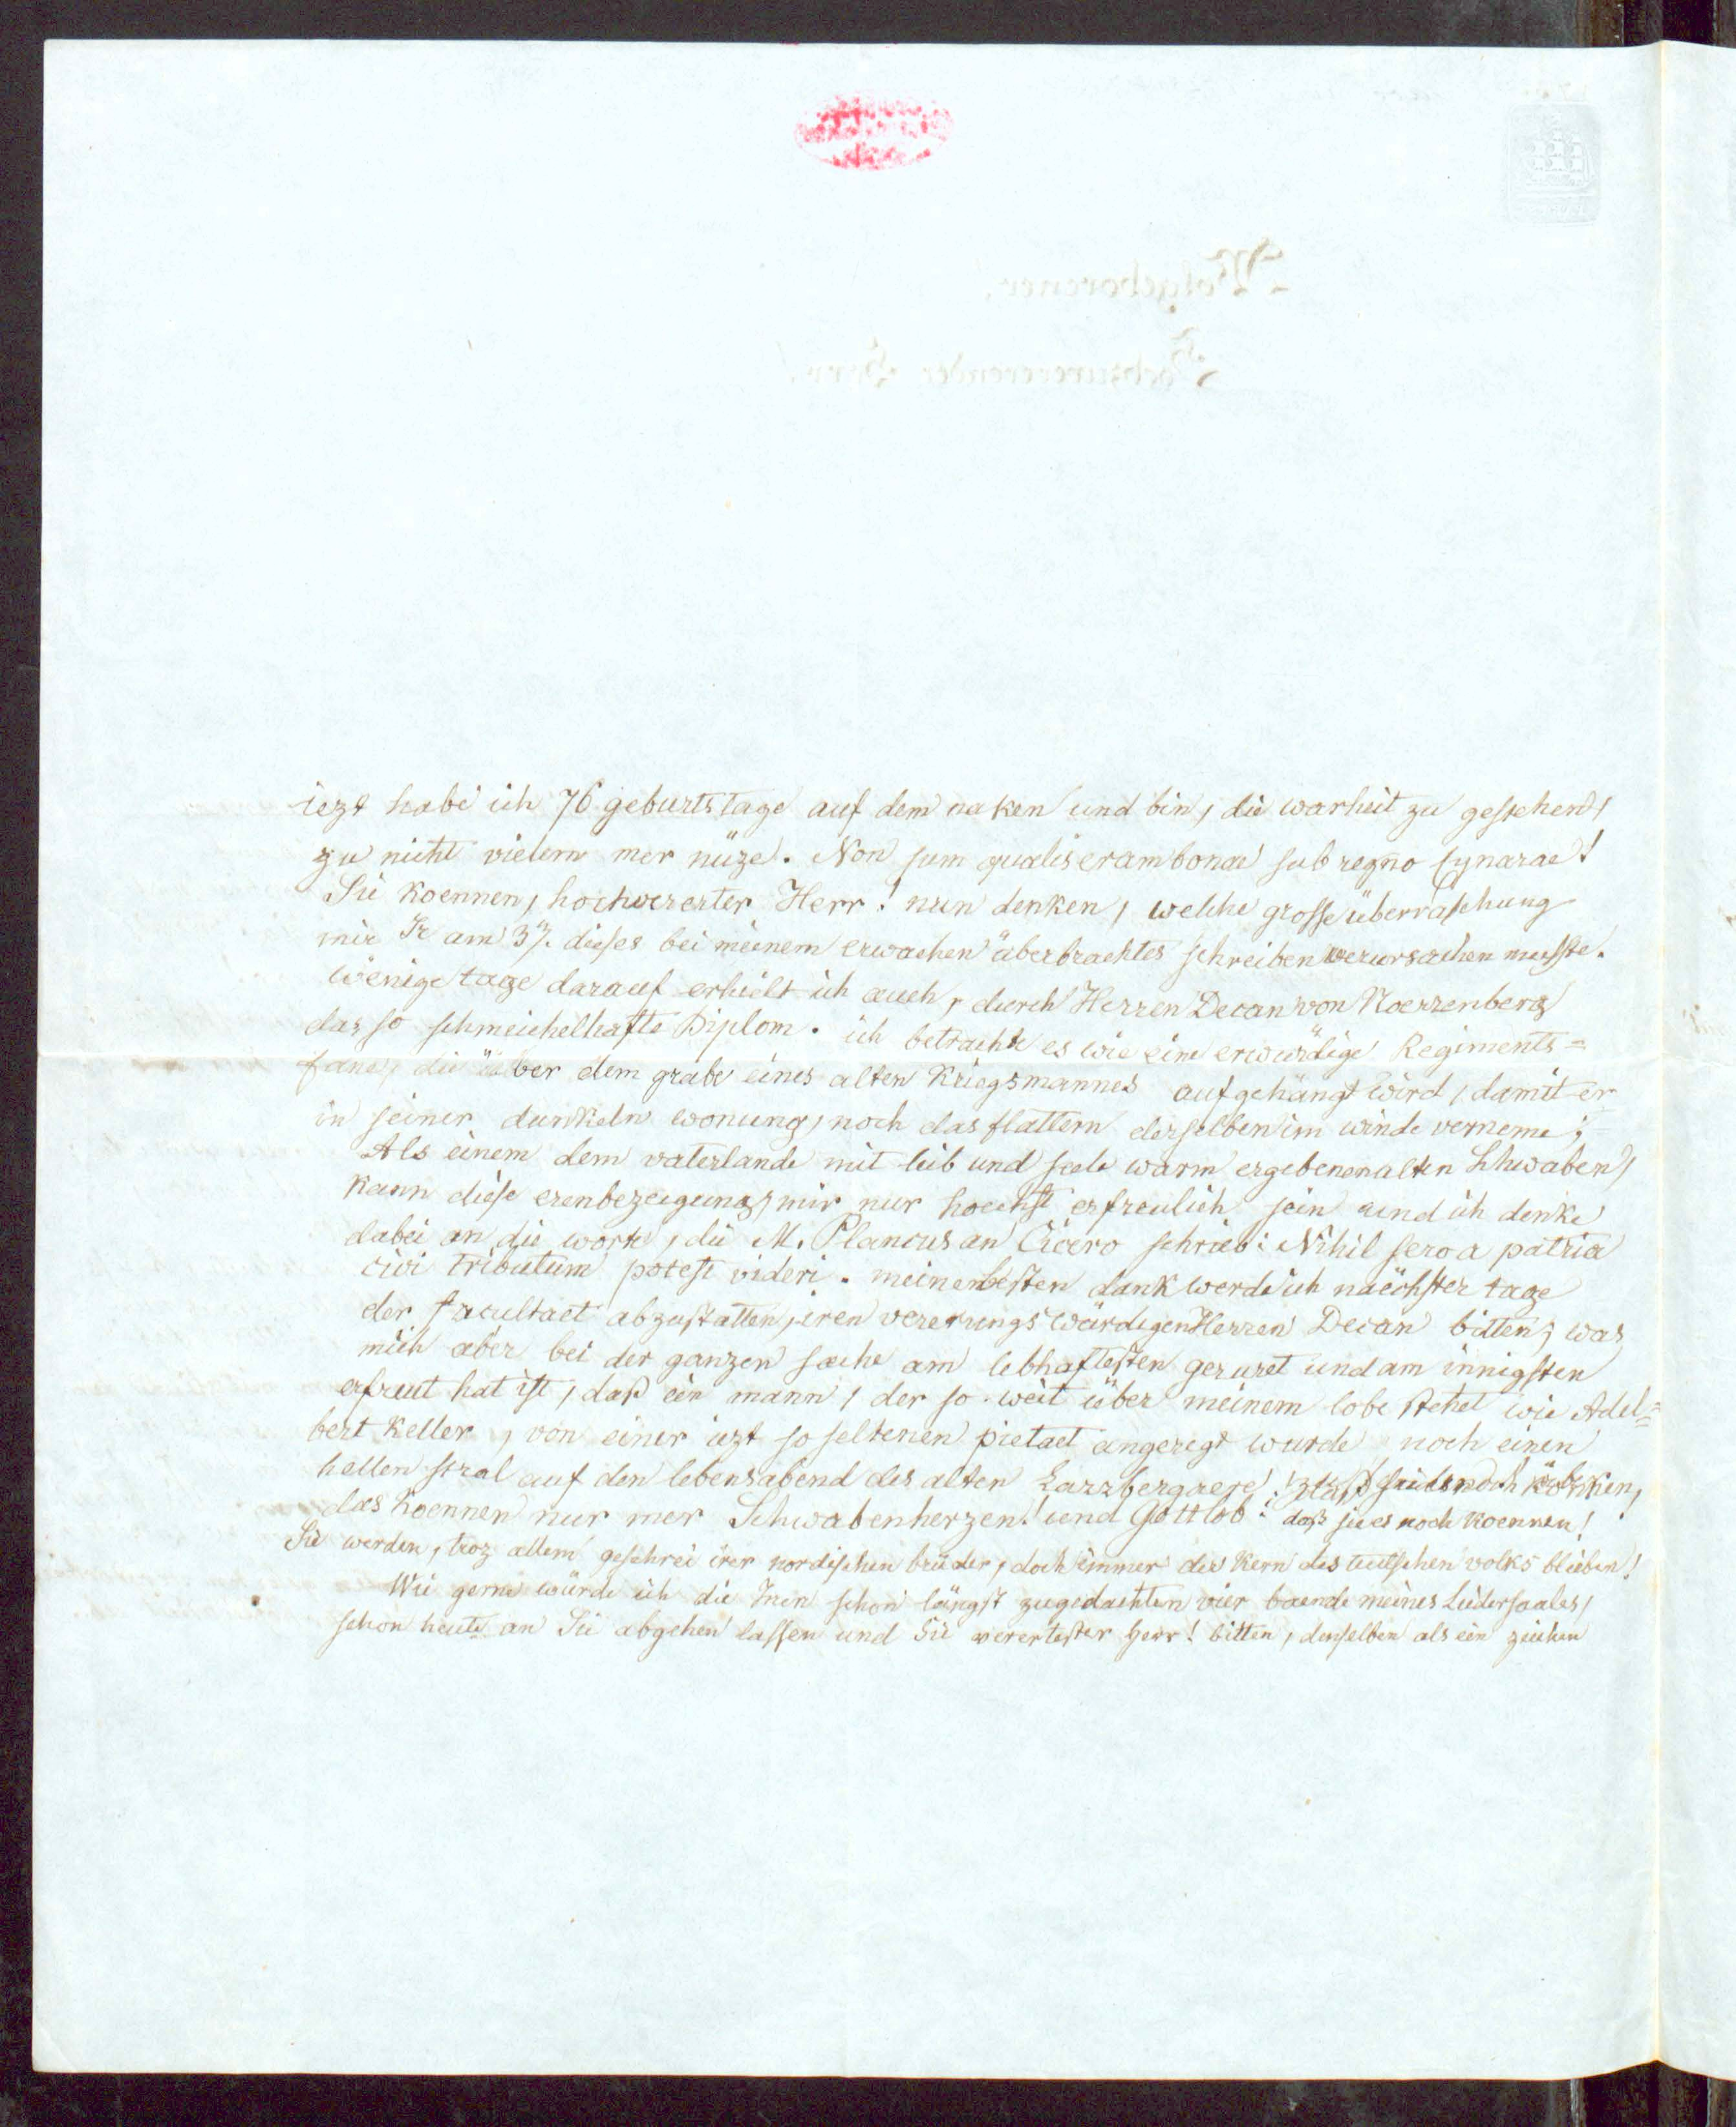 iezt habe ich 76 geburtstage auf dem naken und bin, die warheit zu gestehen,
zu nicht vielem mer nüze. Non sum qualis eram bonae sub regno Cynarae!
Sie koennen, hochvererter Herr! nun denken, welche grosse überraschung
mir Ir am 3ⁿ. dieses bei meinem erwachen überbrachtes schreiben verursachen musste.
wenige tage darauf erhielt ich auch, durch Herren Decan von Noerrenberg
das so schmeichelhafte Diplom. ich betrachte es wie eine erwürdige Regiments=
fane, die über dem grabe eines alten Kriegsmannes aufgehängt wird, damit er
in seiner dunkeln wonung, noch das flattern derselben im winde verneme;
Als einem dem vaterlande mit leib und seele warm ergebenen alten Schwaben,
kann diese erenbezeigung, mir nur hoechst erfreulich sein und ich denke
dabei an die worte, die M. Plancus an Cicero schrieb: Nihil sero a patria
civi tributum potest videri. meinen besten dank werde ich naechster tage
der facultaet abzustatten, iren vererungswürdigen Herren Decan bitten; was
mich aber bei der ganzen sache am lebhaftesten geruret und am innigsten
erfreut hat ist, daß ein mann, der so weit über meinem lobe stehet wie Adel=
bert Keller, von einer iezt so seltenen pietaet angeregt wurde noch einen
hellen stral auf den lebensabend des alten Lazzbergaere!
das koennen nur mer Schwabenherzen! und Gottlob! daß sie es noch koennen!
Sie werden, troz allem geschrei irer nordischen brüder, doch immer der Kern des teutschen volks bleiben!
Wie gerne würde ich die Inen schon längst zugedachten vier baende meines Liedersaales,
schon heute an Sie abgehen lassen und Sie verertester Herr! bitten, denselben als ein zeichen